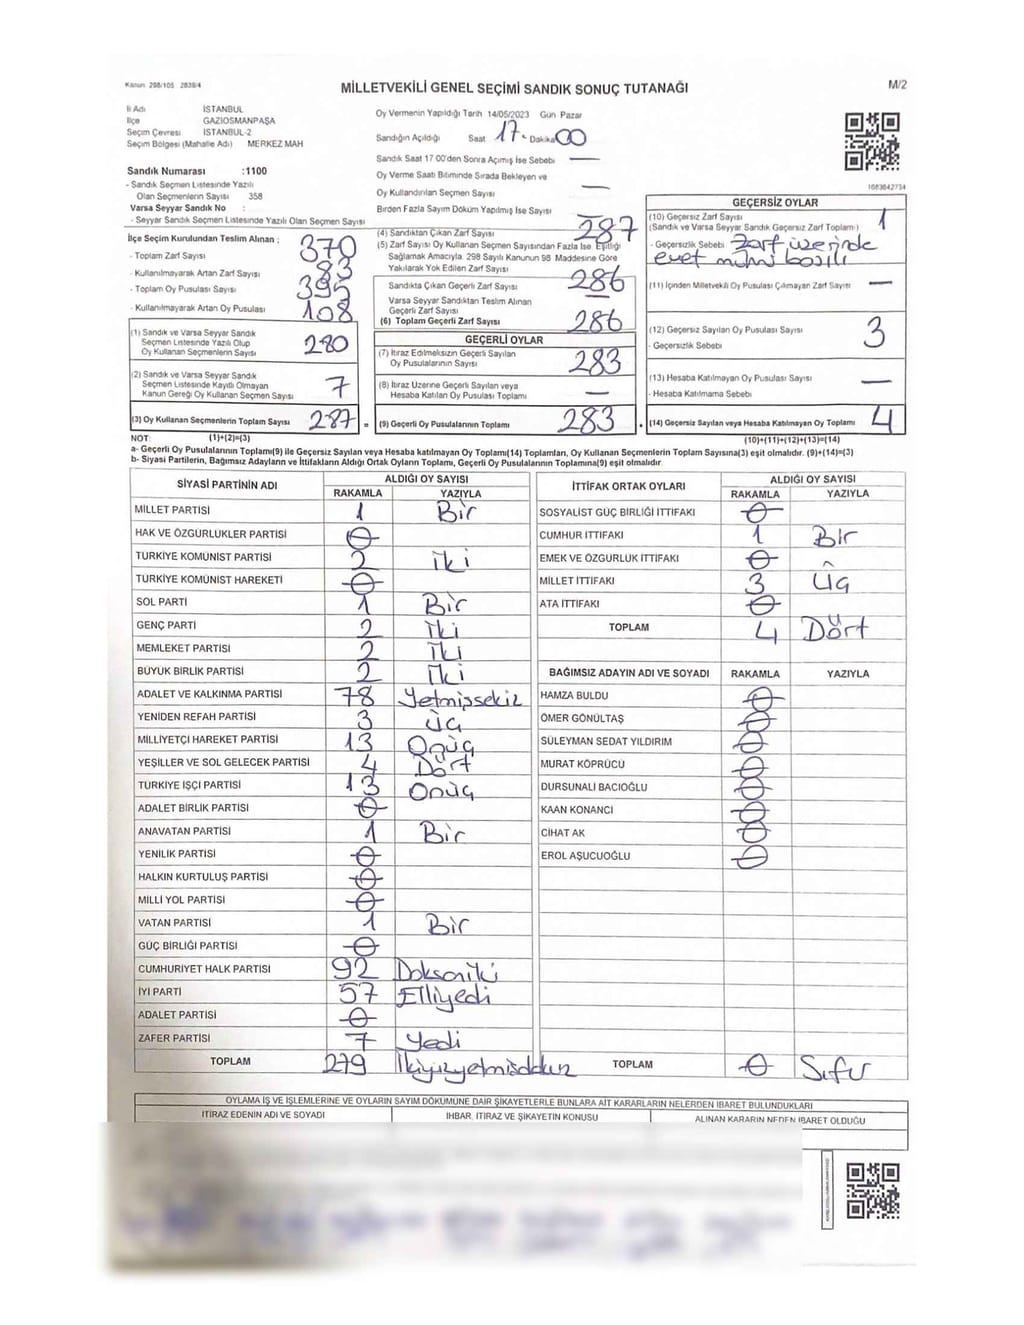 Kanun 298/105 2839/4
MİLLETVEKİLİ GENEL SEÇİMİ SANDIK SONUÇ TUTANAĞI
M/2
İl Adı İSTANBUL
İlçe GAZİOSMANPAŞA
Seçim Çevresi İSTANBUL-2
Seçim Bölgesi (Mahalle Adı) MERKEZ MAH
Sandık Numarası :1100
- Sandık Seçmen Listesinde Yazılı
Olan Seçmenlerin Sayısı 358
Varsa Seyyar Sandık No :
- Seyyar Sandık Seçmen Listesinde Yazılı Olan Seçmen Sayısı
İlçe Seçim Kurulundan Teslim Alınan ;
- Toplam Zarf Sayısı 370
- Kullanılmayarak Artan Zarf Sayısı 83
- Toplam Oy Pusulası Sayısı 395
- Kullanılmayarak Artan Oy Pusulası 108
(1) Sandık ve Varsa Seyyar Sandık
Seçmen Listesinde Yazılı Olup
Oy Kullanan Seçmenlerin Sayısı 280
(2) Sandık ve Varsa Seyyar Sandık
Seçmen Listesinde Kayıtlı Olmayan
Kanun Gereği Oy Kullanan Seçmen Sayısı 7
(3) Oy Kullanan Seçmenlerin Toplam Sayısı 287 =
Oy Vermenin Yapıldığı Tarih 14/05/2023 Gün Pazar
Sandığın Açıldığı Saat 17. Dakika 00
Sandık Saat 17 00'den Sonra Açımış İse Sebebi —
Oy Verme Saati Bitiminde Sırada Bekleyen ve
Oy Kullandırılan Seçmen Sayısı —
Birden Fazla Sayım Döküm Yapılmış İse Sayısı —
(4) Sandıktan Çıkan Zarf Sayısı 287
(5) Zarf Sayısı Oy Kullanan Seçmen Sayısından Fazla İse Eşitliği
Sağlamak Amacıyla 298 Sayılı Kanunun 98 Maddesine Göre
Yakılarak Yok Edilen Zarf Sayısı
Sandıkta Çıkan Geçerli Zarf Sayısı 286
Varsa Seyyar Sandıktan Teslim Alınan
Geçerli Zarf Sayısı —
(6) Toplam Geçerli Zarf Sayısı 286
GEÇERLİ OYLAR
(7) İtiraz Edilmeksizin Geçerli Sayılan
Oy Pusulalarının Sayısı 283
(8) İtiraz Üzerine Geçerli Sayılan veya
Hesaba Katılan Oy Pusulası Toplamı —
(9) Geçerli Oy Pusulalarının Toplamı 283 +
1083842734
GEÇERSİZ OYLAR
(10) Geçersiz Zarf Sayısı 1
(Sandık ve Varsa Seyyar Sandık Geçersiz Zarf Toplamı)
- Geçersizlik Sebebi Zarf üzerinde
evet mührü basılı
(11) İçinden Milletvekili Oy Pusulası Çıkmayan Zarf Sayısı —
(12) Geçersiz Sayılan Oy Pusulası Sayısı 3
- Geçersizlik Sebebi
(13) Hesaba Katılmayan Oy Pusulası Sayısı —
- Hesaba Katılmama Sebebi
(14) Geçersiz Sayılan veya Hesaba Katılmayan Oy Toplamı 4
NOT: (1)+(2)=(3) (10)+(11)+(12)+(13)=(14)
a- Geçerli Oy Pusulalarının Toplamı(9) ile Geçersiz Sayılan veya Hesaba katılmayan Oy Toplamı(14) Toplamları, Oy Kullanan Seçmenlerin Toplam Sayısına(3) eşit olmalıdır. (9)+(14)=(3)
b- Siyasi Partilerin, Bağımsız Adayların ve İttifakların Aldığı Ortak Oyların Toplamı, Geçerli Oy Pusulalarının Toplamına(9) eşit olmalıdır
SİYASİ PARTİNİN ADI ALDIĞI OY SAYISI
RAKAMLA YAZIYLA
MİLLET PARTİSİ 1 Bir
HAK VE ÖZGÜRLÜKLER PARTİSİ 0
TÜRKİYE KOMÜNİST PARTİSİ 2 iki
TÜRKİYE KOMÜNİST HAREKETİ 0
SOL PARTİ 1 Bir
GENÇ PARTİ 2 iki
MEMLEKET PARTİSİ 2 iki
BÜYÜK BİRLİK PARTİSİ 2 iki
ADALET VE KALKINMA PARTİSİ 78 Yetmişsekiz
YENİDEN REFAH PARTİSİ 3 üç
MİLLİYETÇİ HAREKET PARTİSİ 13 Onüç
YEŞİLLER VE SOL GELECEK PARTİSİ 4 Dört
TÜRKİYE İŞÇİ PARTİSİ 13 Onüç
ADALET BİRLİK PARTİSİ 0
ANAVATAN PARTİSİ 1 Bir
YENİLİK PARTİSİ 0
HALKIN KURTULUŞ PARTİSİ 0
MİLLİ YOL PARTİSİ 0
VATAN PARTİSİ 1 Bir
GÜÇ BİRLİĞİ PARTİSİ 0
CUMHURİYET HALK PARTİSİ 92 Doksaniki
İYİ PARTİ 57 Elliyedi
ADALET PARTİSİ 0
ZAFER PARTİSİ 7 Yedi
TOPLAM 279 İkiyüzyetmişdokuz
İTTİFAK ORTAK OYLARI ALDIĞI OY SAYISI
RAKAMLA YAZIYLA
SOSYALİST GÜÇ BİRLİĞİ İTTİFAKI 0
CUMHUR İTTİFAKI 1 Bir
EMEK VE ÖZGÜRLÜK İTTİFAKI 0
MİLLET İTTİFAKI 3 üç
ATA İTTİFAKI 0
TOPLAM 4 Dört
BAĞIMSIZ ADAYIN ADI VE SOYADI RAKAMLA YAZIYLA
HAMZA BULDU 0
ÖMER GÖNÜLTAŞ 0
SÜLEYMAN SEDAT YILDIRIM 0
MURAT KÖPRÜCÜ 0
DURSUNALİ BACIOĞLU 0
KAAN KONANCİ 0
CİHAT AK 0
EROL AŞUCUOĞLU 0
TOPLAM 0 Sıfır
OYLAMA İŞ VE İŞLEMLERİNE VE OYLARIN SAYIM DÖKÜMÜNE DAİR ŞİKAYETLERLE BUNLARA AİT KARARLARIN NELERDEN İBARET BULUNDUKLARI
İTİRAZ EDENİN ADI VE SOYADI İHBAR, İTİRAZ VE ŞİKAYETİN KONUSU ALINAN KARARIN NEDEN İBARET OLDUĞU